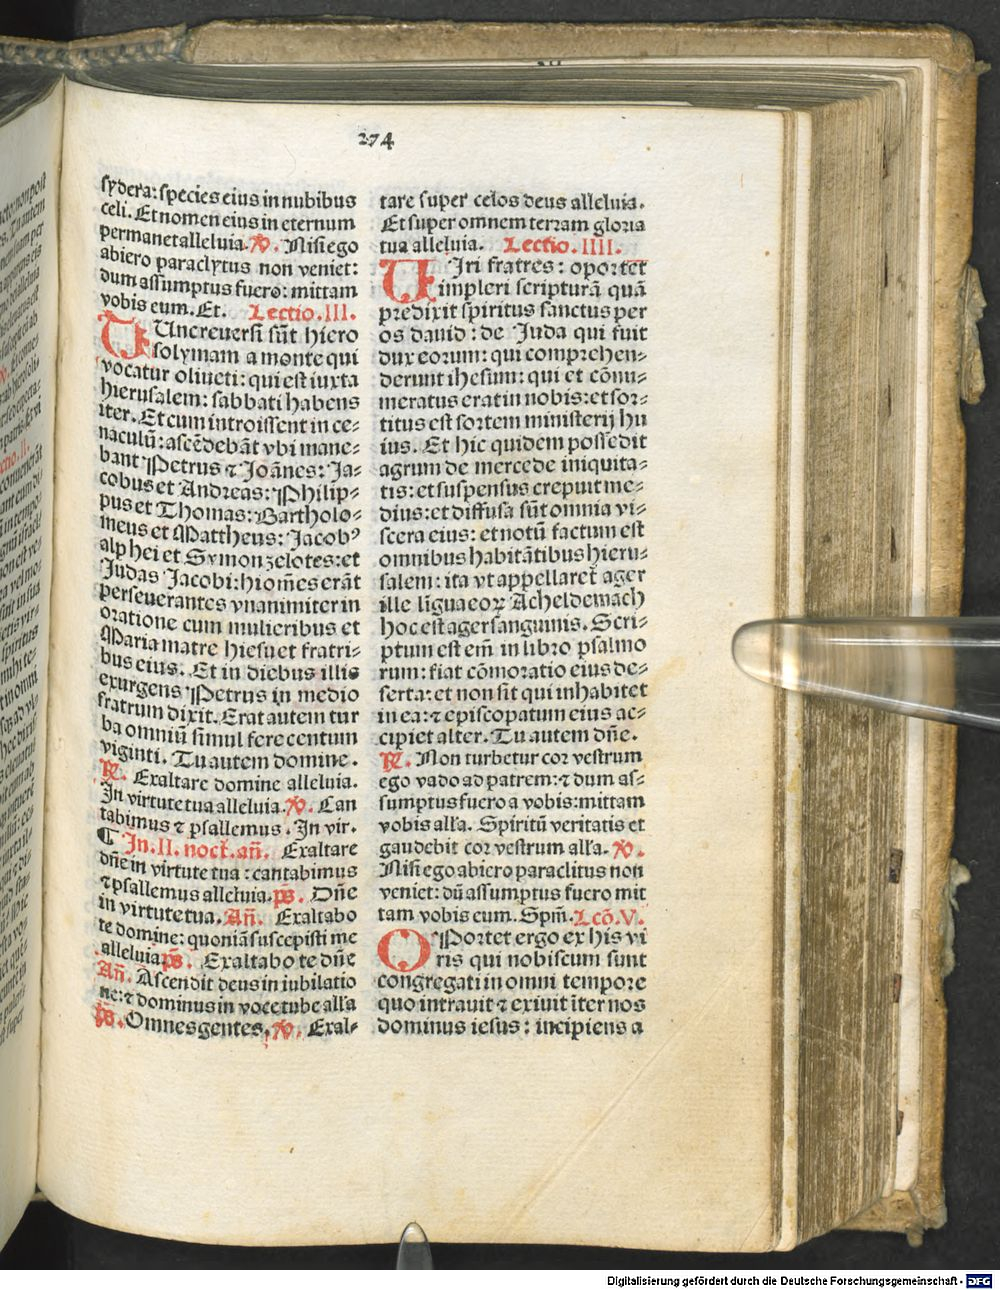 274
sydera: species eius in nubibus
celi. Et nomen eius in eternum
permanet alleluia. V. Nisi ego
abiero paraclytus non veniet:
dum assumptus fuero: mittam
vobis eum. Et. Lectio. III.
TUnc reuersi sūt hiero
solymam a monte qui
vocatur oliueti: qui est iuxta
hierusalem: sabbati habens
iter. Et cum introissent in ce-
naculū: ascēdebāt vbi mane-
bant Petrus ⁊ Joānes: Ja-
cobus et Andreas: Philip-
pus et Thomas: Bartholo-
meus et Mattheus: Jacobꝰ
alphei et Symon zelotes: et
Judas Jacobi: hi om̄es erāt
perseuerantes vnanimiter in
oratione cum mulieribus et
Maria matre hiesu et fratri-
bus eius. Et in diebus illis
exurgens Petrus in medio
fratrum dixit. Erat autem tur
ba omniū simul fere centum
viginti. Tu autem domine.
R. Exaltare domine alleluia.
In virtute tua alleluia. V. Can
tabimus ⁊ psallemus. In vir.
¶ In. II. noct. añ. Exaltare
dñe in virtute tua: cantabimus
⁊ psallemus alleluia. ps. Dñe
in virtute tua. Añ. Exaltabo
te domine: quoniā suscepisti me
alleluia. ps. Exaltabo te dñe
Añ. Ascendit deus in iubilatio
ne: ⁊ dominus in voce tube alľa
ps. Omnes gentes. V. Exal-
tare super celos deus alleluia.
Et super omnem terram gloria
tua alleluia. Lectio. IIII.
UIri fratres: oportet
impleri scripturā quā
predixit spiritus sanctus per
os dauid: de Juda qui fuit
dux eorum: qui comprehen-
derunt ihesum: qui et cōnu-
meratus erat in nobis: et sor-
titus est sortem ministerij hu
ius. Et hic quidem possedit
agrum de mercede iniquita-
tis: et suspensus crepuit me-
dius: et diffusa sūt omnia vi-
scera eius: et notū factum est
omnibus habitātibus hieru-
salem: ita vt appellaret̄ ager
ille līgua eoꝝ Acheldemach
hoc est ager sanguinis. Scri-
ptum est em̄ in libro psalmo
rum: fiat cōmoratio eius de-
serta: et non sit qui inhabitet
in ea: ⁊ episcopatum eius ac-
cipiet alter. Tu autem dñe.
R. Non turbetur cor vestrum
ego vado ad patrem: ⁊ dum as-
sumptus fuero a vobis: mittam
vobis alľa. Spiritū veritatis et
gaudebit cor vestrum alľa. V.
Nisi ego abiero paraclitus non
veniet: dū assumptus fuero mit
tam vobis eum. Spm̄. Lcō. V.
OPortet ergo ex his vi
ris qui nobiscum sunt
congregati in omni tempore
quo intrauit ⁊ exiuit iter nos
dominus iesus: incipiens a
Digitalisierung gefördert durch die Deutsche Forschungsgemeinschaft - DFG